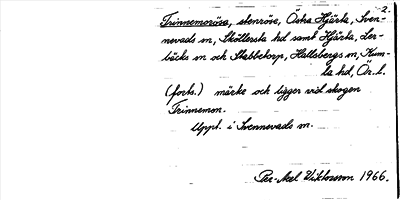 2.
Trinnemorösa, stenröse, Östra Hjärta, Sven-
nevads sn, Sköllersta hd samt Hjärta, Ler-
bäcks sn och Skabbetorp, Hallsbergs sn, Kum-
la hd, Ör. l.
(forts.) märke och ligger vid skogen
Trinnemon.
Uppt. i Svennevads sn.
Per-Axel Wiktorsson 1966.